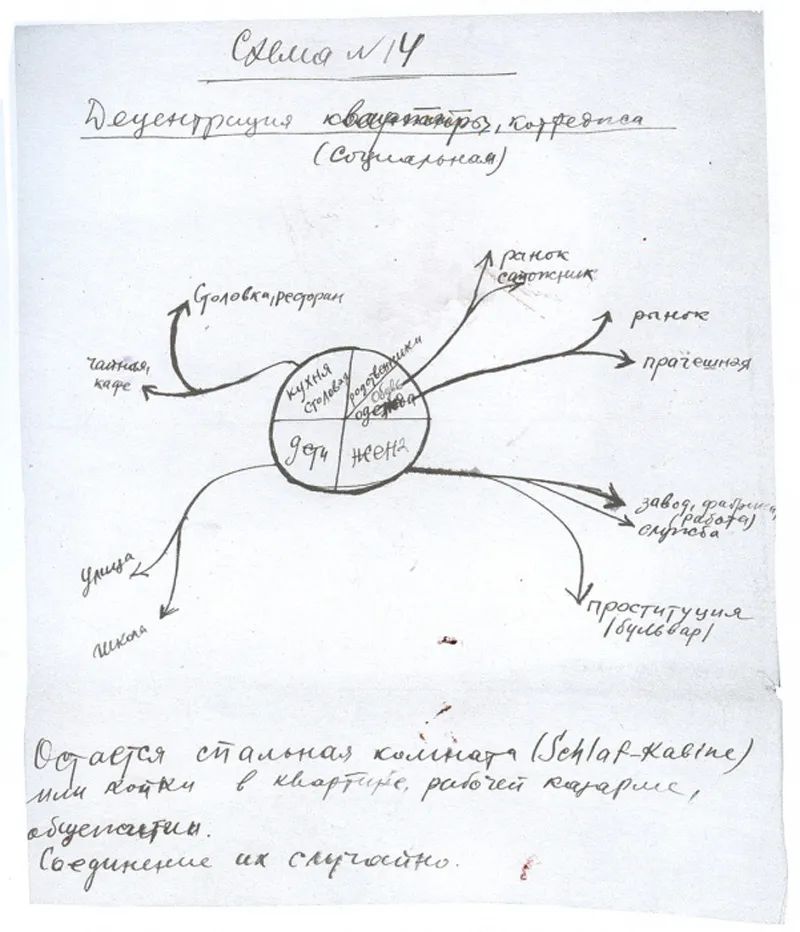 Схема N 14
Децентрация квартиры, коттеджа
(Социальная)
ранок
сапожник
Столовка, ресторан
рынок
чайная,
кафе
прачешная
кухня
столовая
родственники
Обувь
одежда
дети
жена
завод, фабрика,
(работа)
служба
улица
проституция
/бульвар/
школа
Остается спальная комната (Schlaf-Kabine)
или койки в квартире, рабочей казарме,
общежитии.
Соединение их случайно.